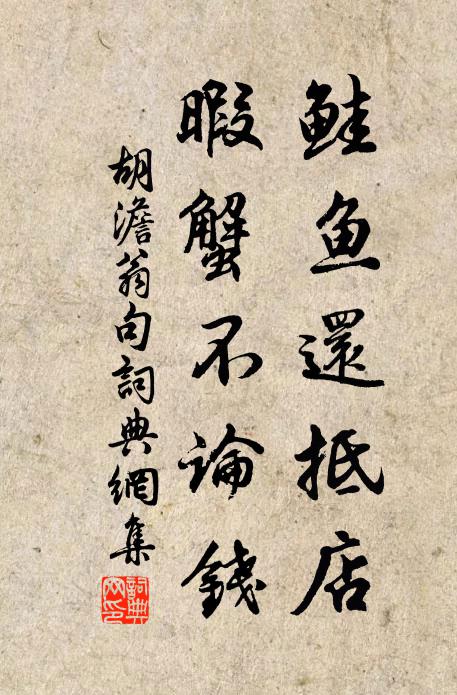 鮭魚還抵店
暇蟹不論錢
胡澹翁句詞典網集
詞典网印